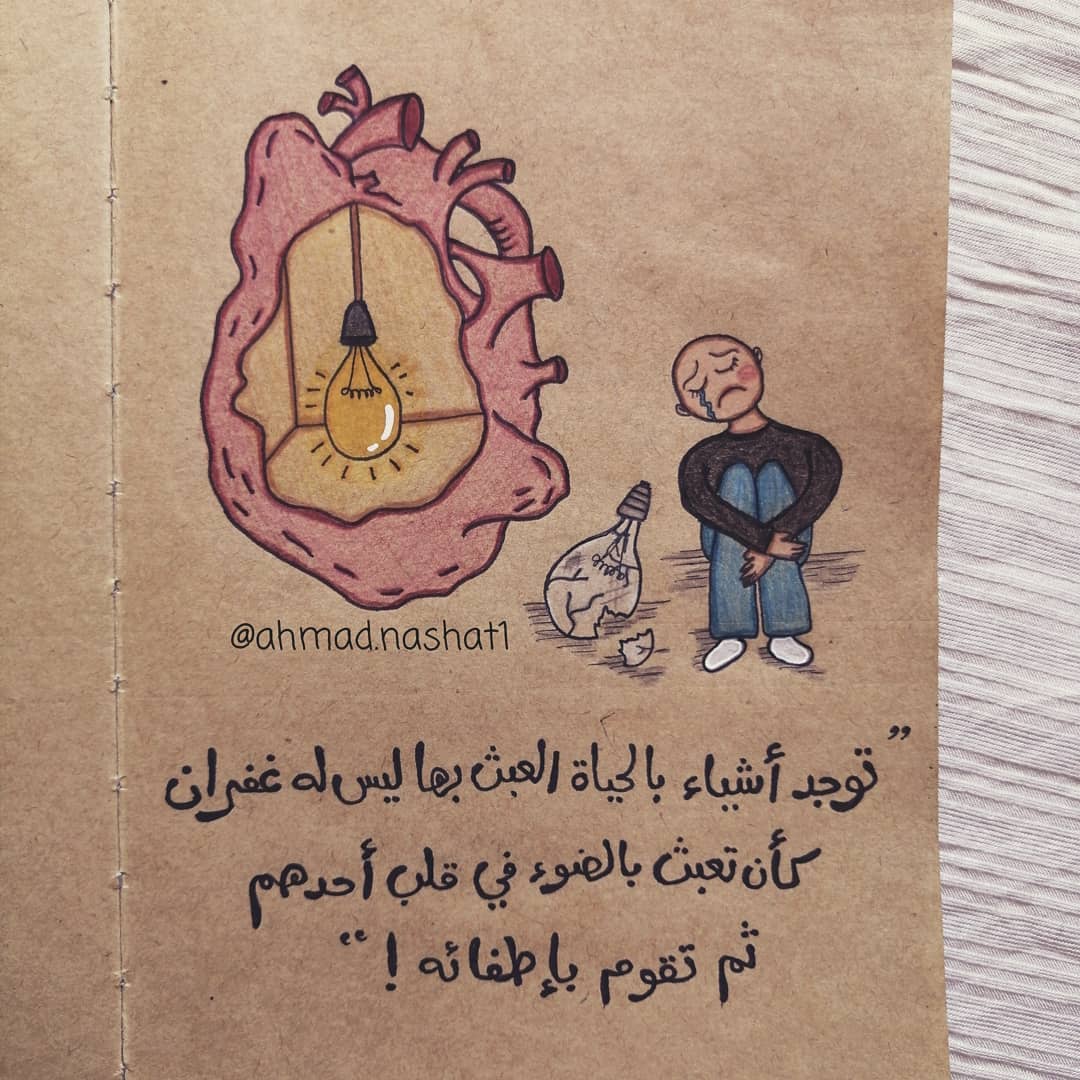 @ahmad.nashat1
”توجد أشياء بالحياة العبث بها ليس له غفران
كأن تعبث بالضوء في قلب أحدهم
ثم تقوم بإطفائه ! “